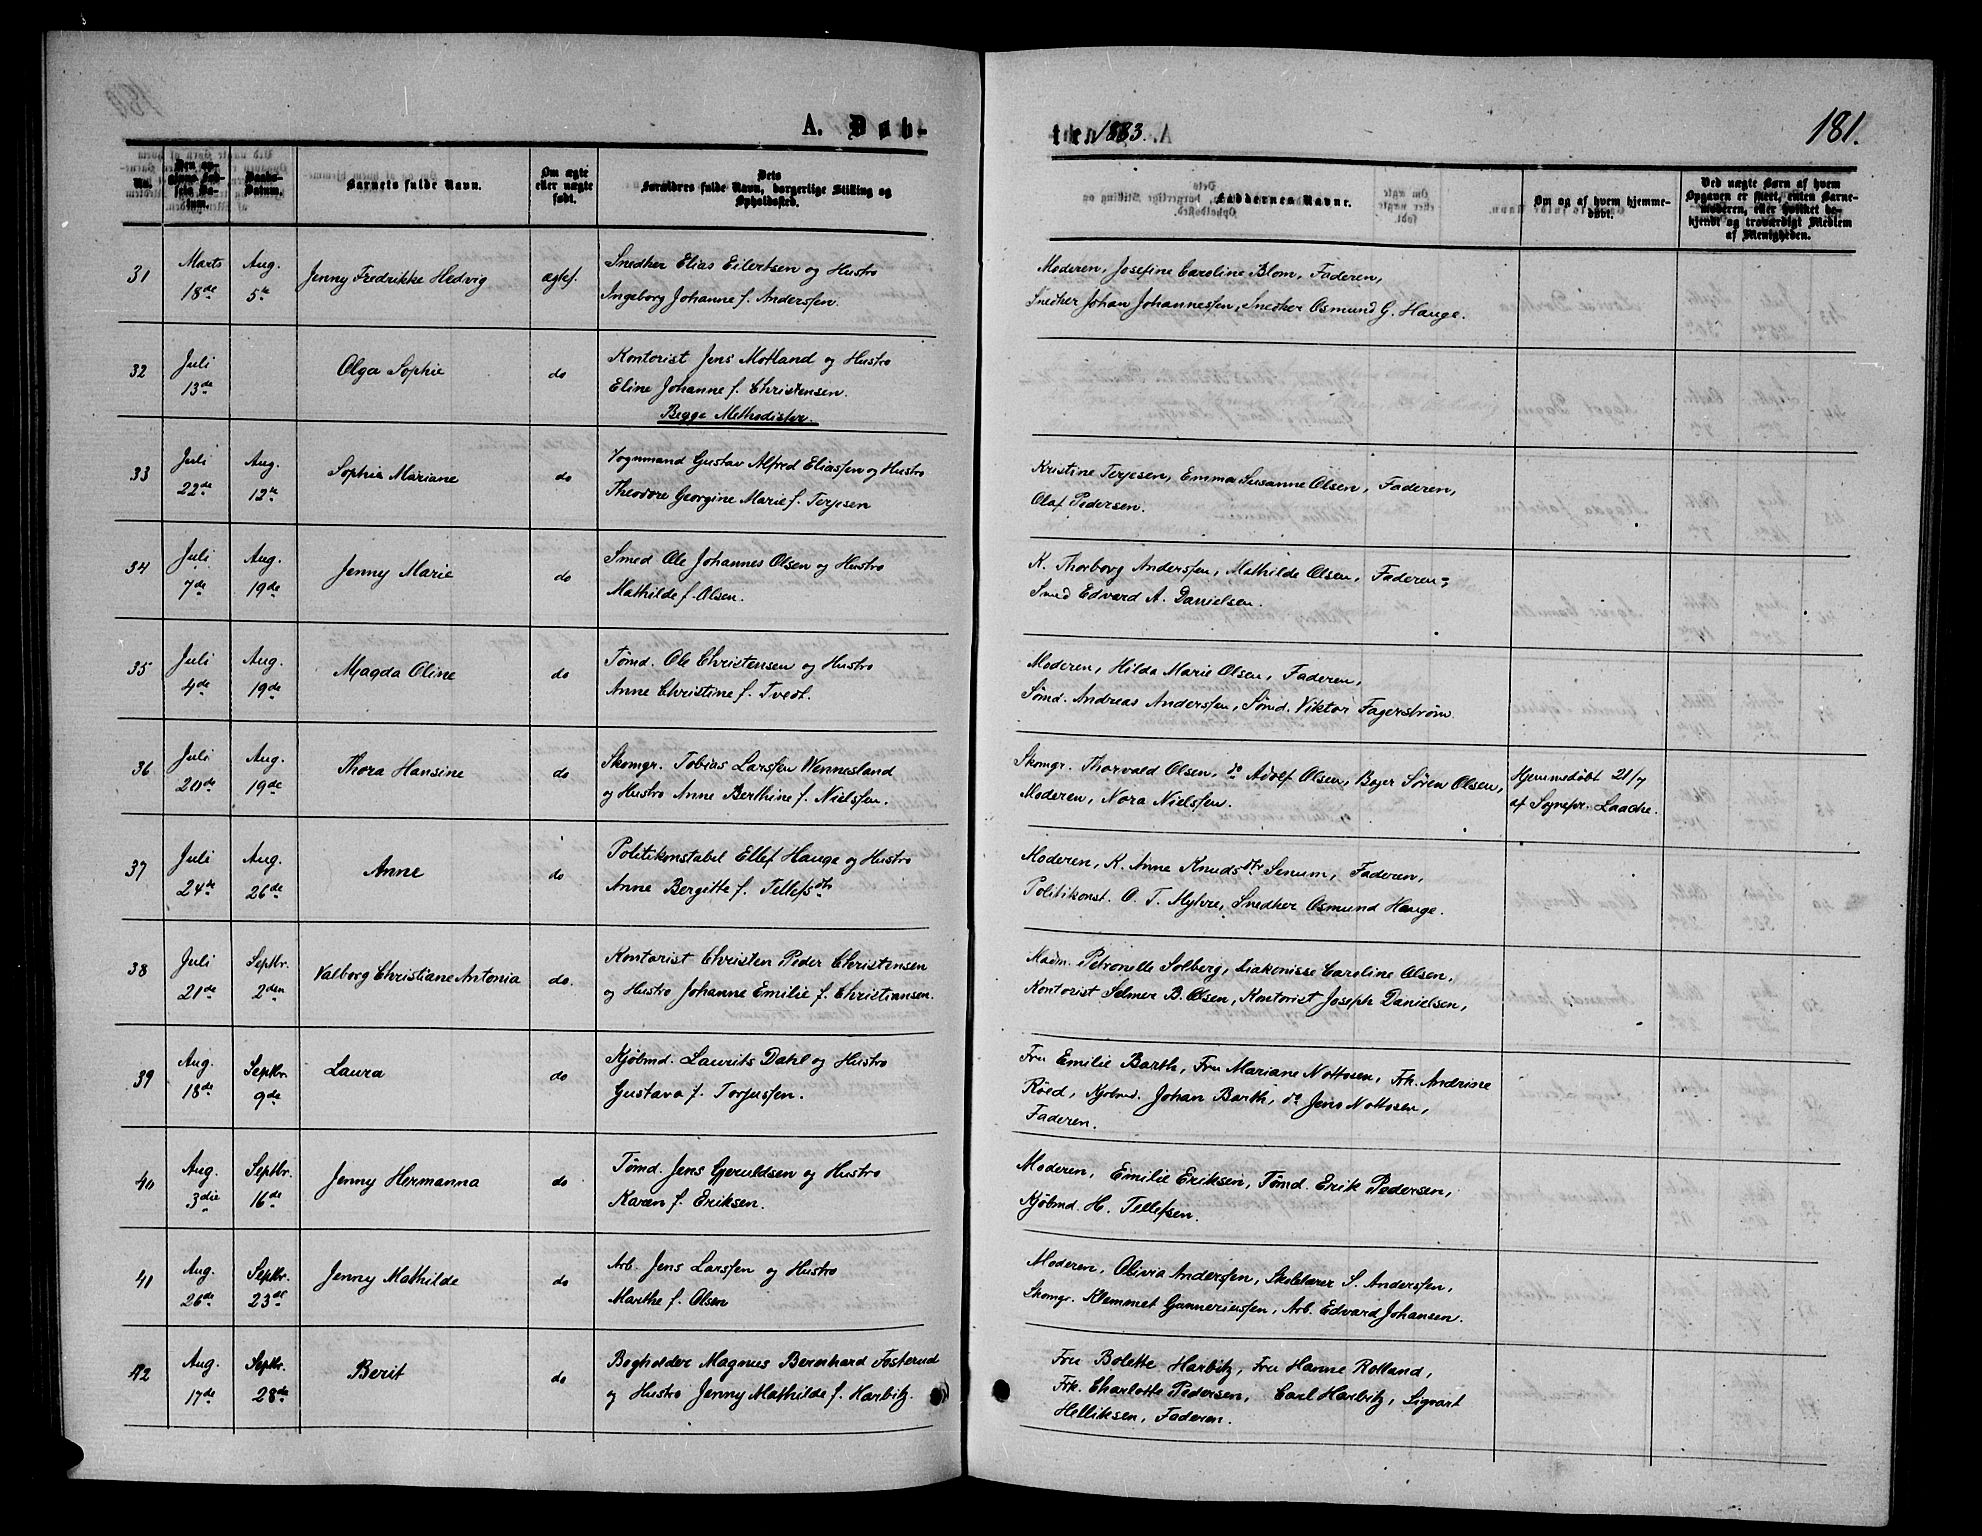 A. Døb-
Nr.
Den op-
givne Fød-
sels Da-
tum.
Daabs-
Datum.
Barnets fulde Navn.
Om ægte
eller uægte
født.
Dets
Forældres fulde Navn, borgerlige Stilling og
Opholdssted.
31
Marts
18de
Aug.
5te
Jenny Fredrikke Hedvig
ægtef.
Snedker Elias Eilertsen og Hustro
Ingeborg Johanne f. Anderssen.
32
Juli
13de
Olga Sophie
do
Kontorist Jens Motland og Hustro
Eline Johanne f. Christensen.
Begge Methodister.
33
Juli
22de
Aug.
12te
Sophie Mariane
do
Vognmand Gustav Alfred Eliassen og Hustro
Theodore Georgine Marie f. Terjesen
34
Juli
7de
Aug.
19de
Jenny Marie
do
Smed Ole Johannes Olsen og Hustro
Mathilde f. Olsen.
35
Juli
4de
Aug.
19de
Magda Oline
do
Tømd. Ole Christensen og Hustro
Anne Christine f. Tvedt.
36
Juli
20de
Aug.
19de
Thora Hansine
do
Skomgr. Tobias Larssen Wennesland
og Hustro Anne Berthine f. Nielssen.
37
Juli
24de
Aug.
26de
Anne
do
Politikonstabel Ellef Hauge og Hustro
Anne Bergitte f. Tellefsdtr
38
Juli
21de
Septbr.
2den
Valborg Christiane Antonia
do.
Kontorist Christen Peder Christensen
og Hustro Johanne Emilie f. Christiansen.
39
Aug.
18de
Septbr.
9de
Laura
do
Kjøbmd. Laurits Dahl og Hustro
Gustava f. Torjussen.
40
Aug.
3die
Septbr.
16de
Jenny Hermanna
do
Tømd. Jens Gjeruldsen og Hustro
Karen f. Eriksen.
41
Aug.
26de
Septbr.
23de
Jenny Mathilde
do
Arb. Jens Larssen og Hustro
Marthe f. Olsen
42
Aug.
17de
Septbr.
28de
Berit
do
Bogholder Magnus Bernhard Fosterud
og Hustro Jenny Mathilde f. Harbitz.
ten 1883.
181.
Faddernes Navne.
Om og af hvem hjemme-
døbt.
Ved uægte Børn af hvem
Opgaven er skeet, enten Barne-
moderen, eller hvilket be-
kjendt og troværdigt Medlem
af Menigheden.
Moderen, Josefine Caroline Blom, Faderen,
Snedker Johan Johannessen, Snedker Osmund G. Hauge.
Kristine Terjesen, Emma Susanne Olsen, Faderen,
Olaf Pedersen.
K. Thorborg Anderssen, Mathilde Olsen, Faderen,
Smed Edvard A. Danielsen.
Moderen, Hilda Marie Olsen, Faderen,
Sømd. Andreas Anderssen, Sømd. Viktor Fagerstrøm.
Skomgr. Thorvald Olsen, do Adolf Olsen, Bager Søren Olsen,
Moderen, Nora Nielssen.
Hjemmedøbt 21/7
af Sognepr. Laache.
Moderen, K. Anne Knudsdtr Senum, Faderen,
Politikonst. O. T. Mykre, Snedker Osmund Hauge.
Madm. Petronelle Solberg, Diakonisse Caroline Olsen,
Kontorist Selmer B. Olsen, Kontorist Joseph Danielsen,
Fru Emilie Barth, Fru Mariane Nottosen, Frk. Andrine
Röed, Kjøbmd. Johan Barth, do Jens Nottosen,
Faderen.
Moderen, Emilie Eriksen, Tømd. Erik Pedersen,
Kjøbmd. H. Tellefsen.
Moderen, Olivia Anderssen, S. Anderssen,
Skomgr. Klemmet Gunneriussen, Arb. Edvard Johansen.
Fru Bolette Harbitz, Fru Hanne Rolland,
Frk. Charlotte Pedersen, Carl Harbitz, Sigvart
Helliksen, Faderen.